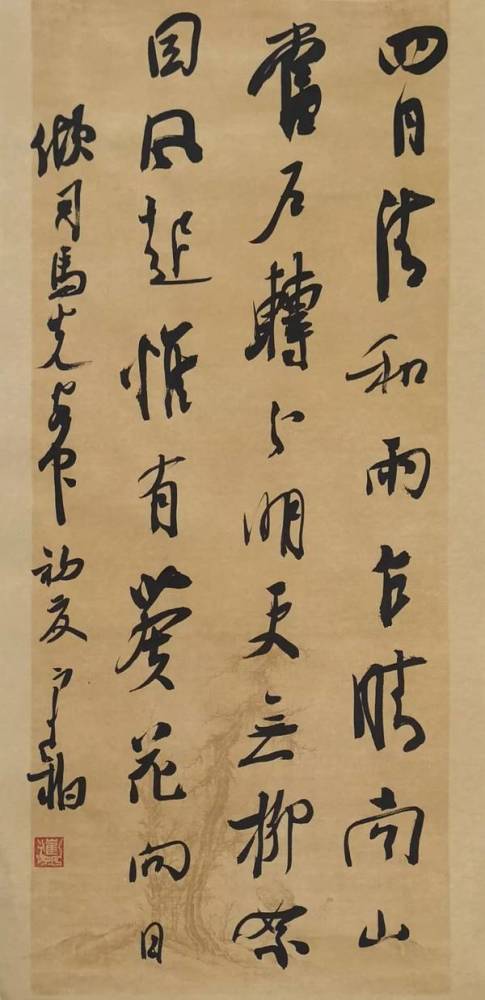 四月清和雨乍晴南山
當户轉分明更無柳絮
因風起惟有葵花向日
傾司馬光客中初夏